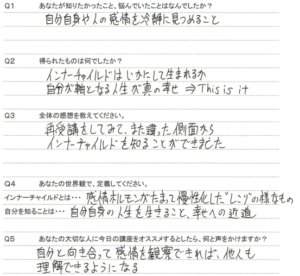 Q1 あなたが知りたかったこと、悩んでいたことはなんでしたか?
自分自身や人の感情を冷静に見つめること
Q2 得られたものは何でしたか?
インナーチャイルドはいかにして生まれるか
自分が軸となる人生が真の幸せ ⇒ This is it
Q3 全体の感想を教えてください。
再受講をしてみて、また違った側面から
インナーチャイルドを知ることができました
Q4 あなたの世界観で、定義してください。
インナーチャイルドとは・・・ 感情ホルモンがたまって慢性化した"レンゾ"の様なもの
自分を知ることは・・・ 自分自身の人生を生きること、幸せへの近道
Q5 あなたの大切な人に今日の講座をオススメするとしたら、何と声をかけますか?
自分と向き合って感情を観察できれば、他人も
理解できるようになる